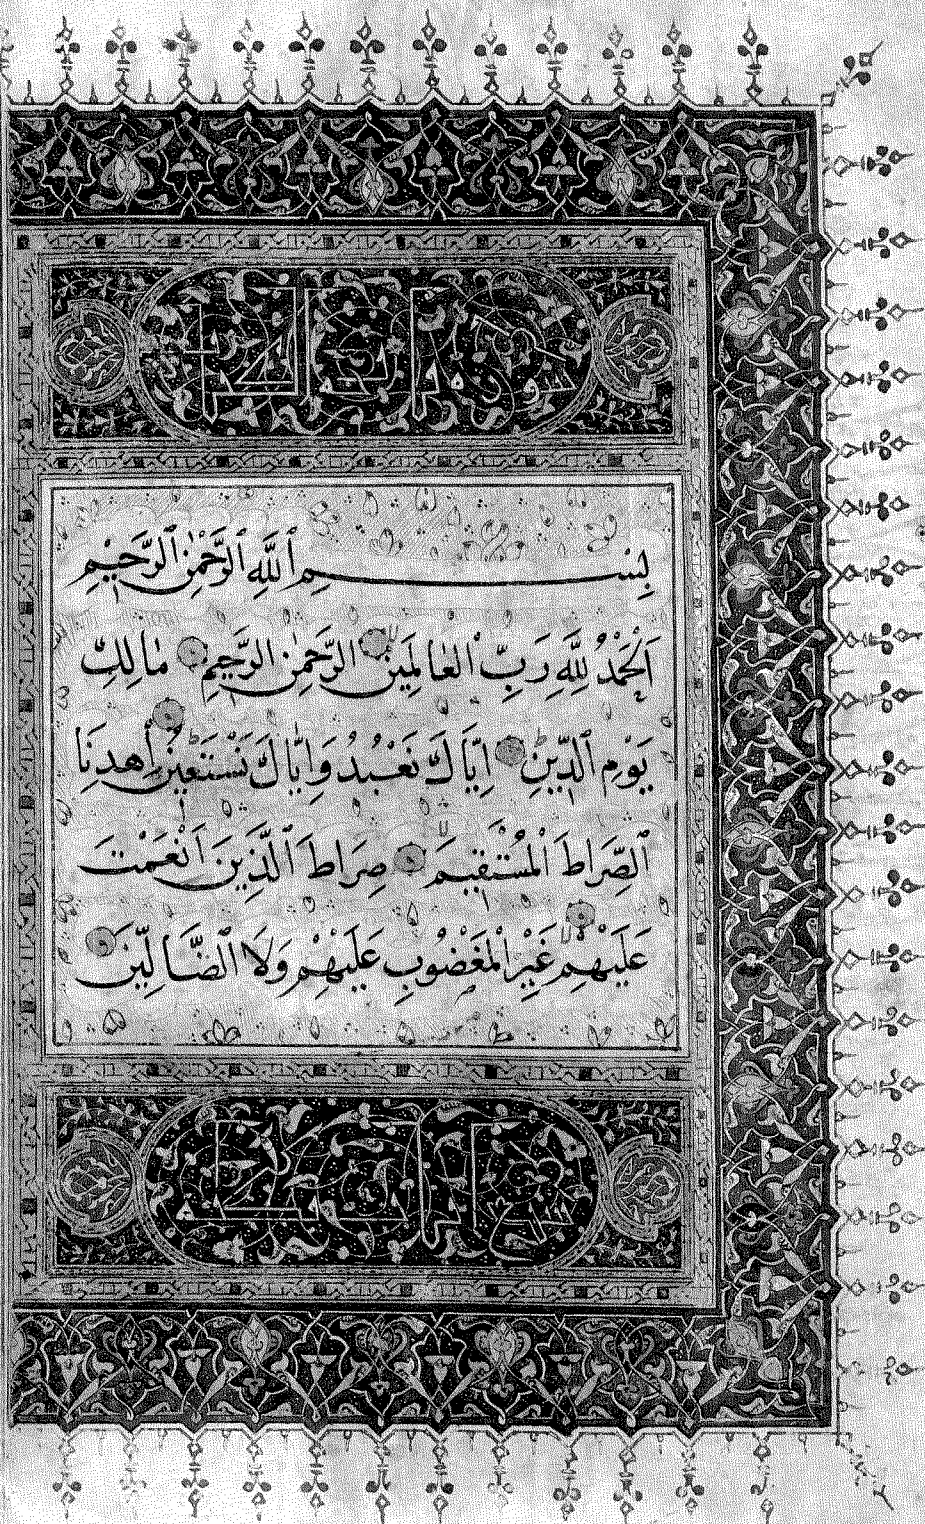 بِسْمِ ٱللَّهِ ٱلرَّحْمٰنِ ٱلرَّحِيمِ
اَلْحَمْدُ لِلَّهِ رَبِّ ٱلْعَالَمِينَ الرَّحْمٰنِ الرَّحِيمِ مَالِكِ
يَوْمِ ٱلدِّينِ اِيَّاكَ نَعْبُدُ وَاِيَّاكَ نَسْتَعِينُ اِهْدِنَا
ٱلصِّرَاطَ الْمُسْتَقِيمَ صِرَاطَ ٱلَّذِينَ اَنْعَمْتَ
عَلَيْهِمْ غَيْرِ الْمَغْضُوبِ عَلَيْهِمْ وَلَا ٱلضَّالِّينَ